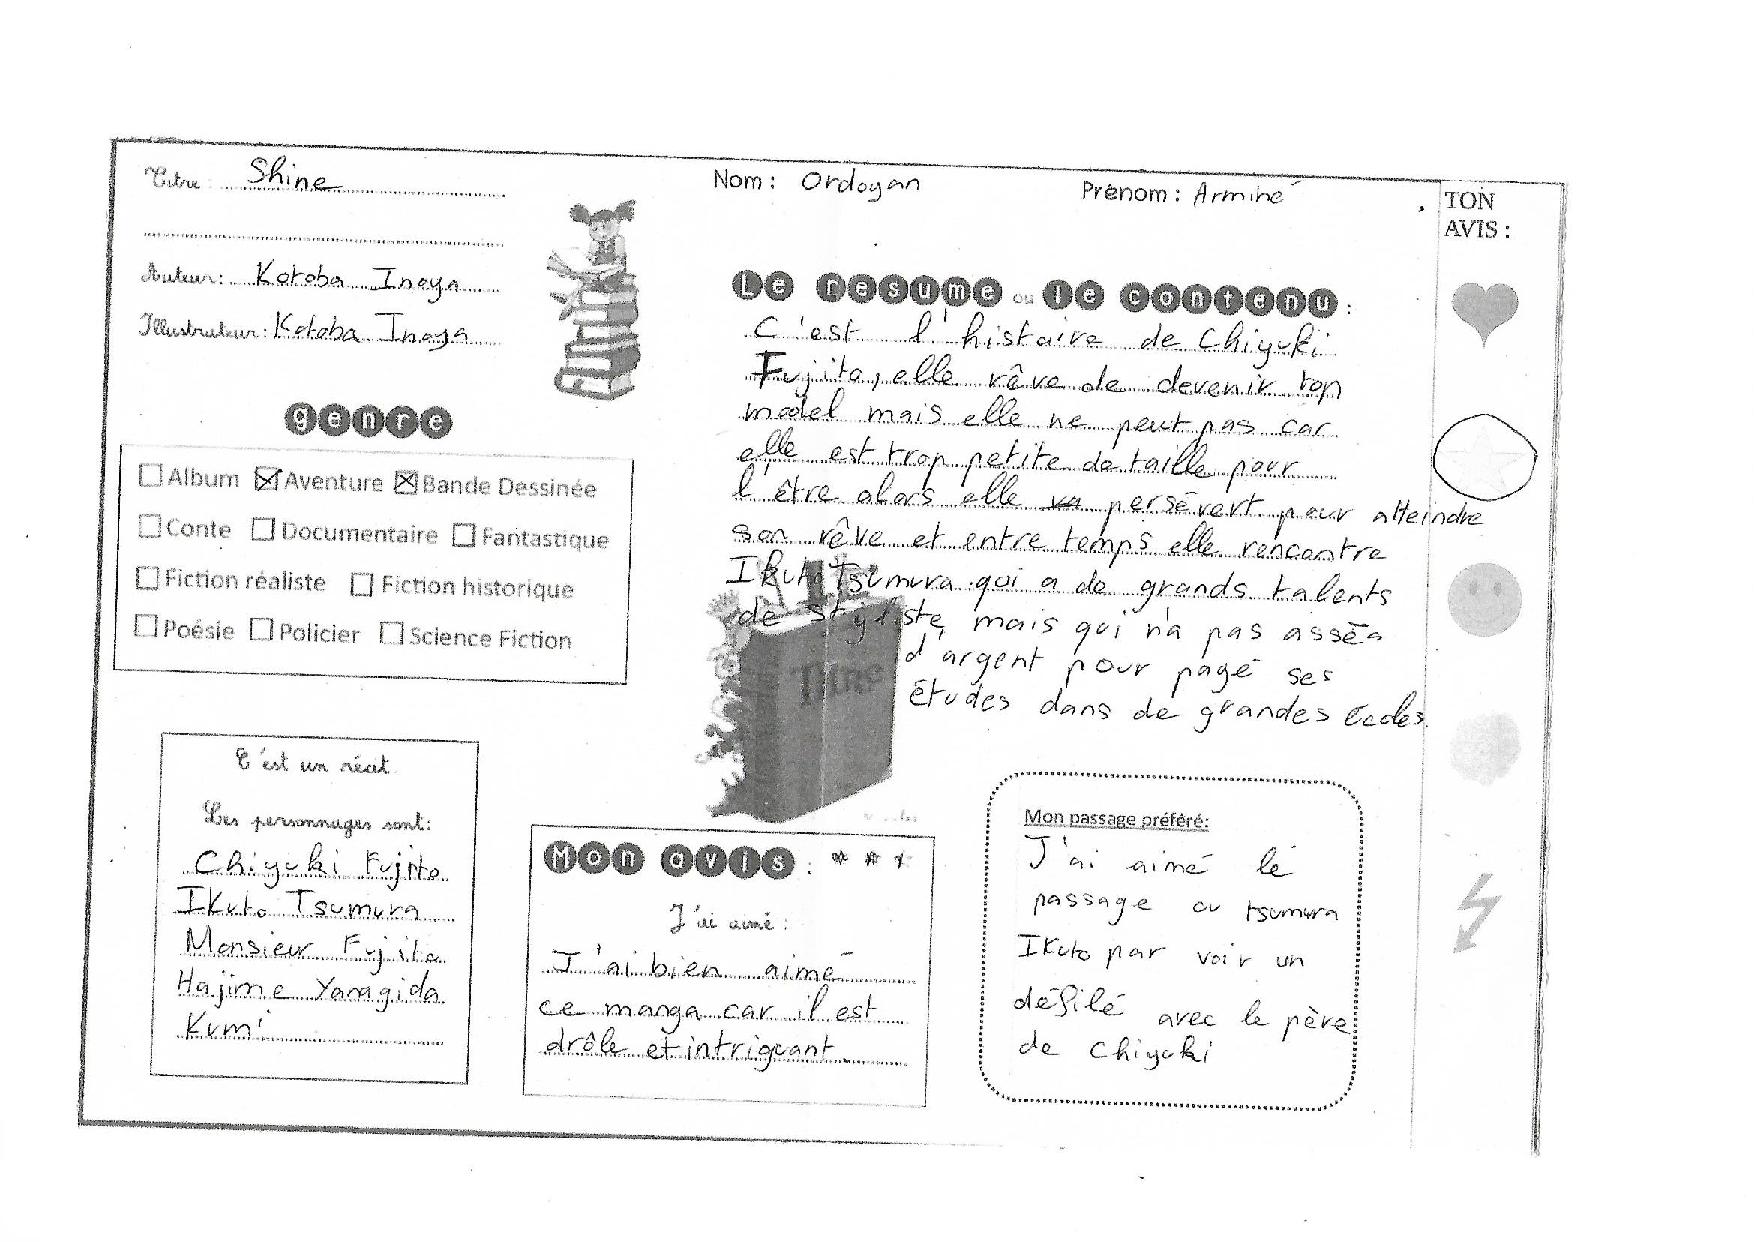 Titre : Shine
Auteur : Kotoba Inoya
Illustrateur : Kotoba Inoya
genre
Album Aventure Bande Dessinée
Conte Documentaire Fantastique
Fiction réaliste Fiction historique
Poésie Policier Science Fiction
C'est un récit
Les personnages sont:
Chiyuki Fujito
Ikuto Tsumura
Monsieur Fujito
Hajime Yanagida
Kumi
Nom : Ordoyan Prénom : Arminé
Le resume ou le contenu :
C'est l'histoire de Chiyuki
Fujito, elle rêve de devenir top
model mais elle ne peut pas car
elle est trop petite de taille pour
l'être alors elle persévert pour atteindre
son rêve et entre temps elle rencontre
Ikuto Tsumura qui a de grands talents
de styliste, mais qui n'a pas asséa
d'argent pour payé ses
études dans de grandes écoles.
TITRE
Mon avis : * * *
J'ai aimé :
J'ai bien aimé
ce manga car il est
drôle et intriguant
Mon passage préféré:
J'ai aimé lé
passage ou tsumura
Ikuto par voir un
défilé avec le père
de Chiyuki
TON
AVIS :